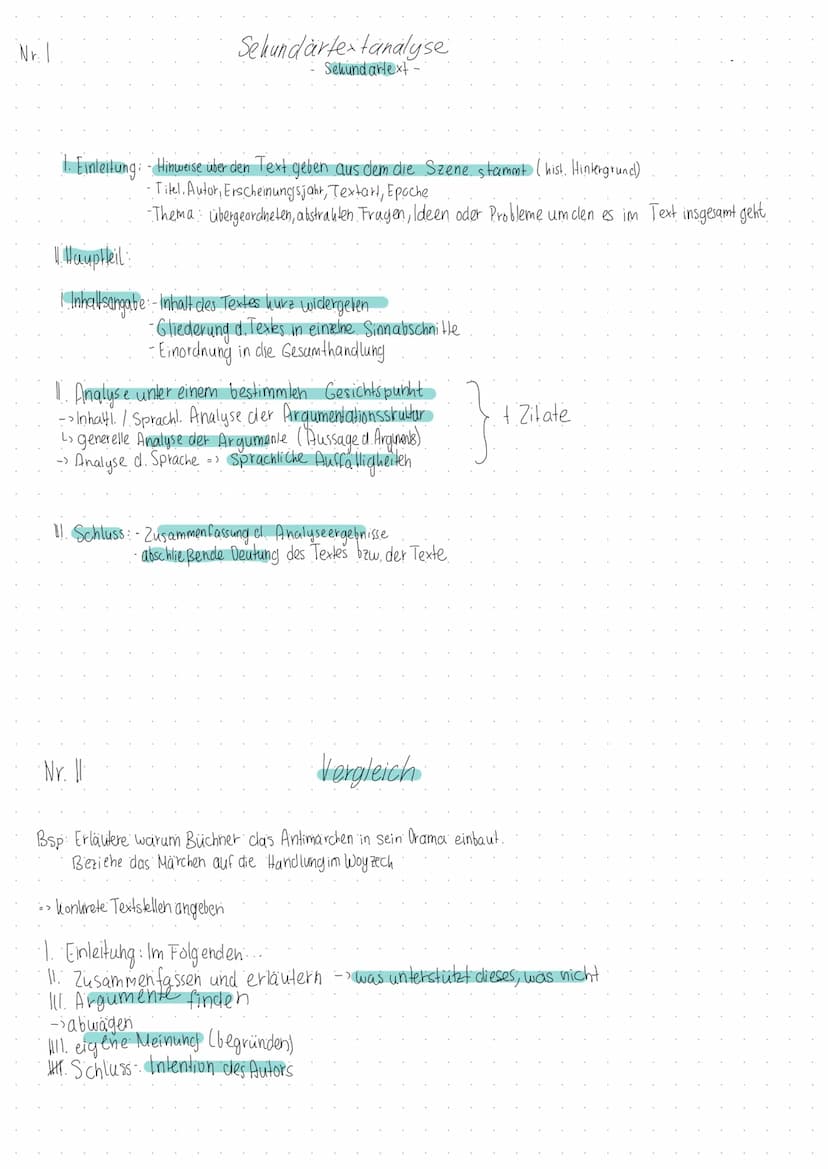 Nr. I
Sekundärtextanalyse
- Sekundärtext -
I. Einleitung: - Hinweise über den Text geben aus dem die Szene stammt (hist. Hintergrund)
- Titel, Autor, Erscheinungsjahr, Textart, Epoche
- Thema: übergeordneten, abstrakten Fragen, Ideen oder Probleme um den es im Text insgesamt geht
II. Hauptteil:
I. Inhaltsangabe: - Inhalt des Textes kurz widergeben
- Gliederung d. Textes in einzelne Sinnabschnitte
- Einordnung in die Gesamthandlung
II. Analyse unter einem bestimmten Gesichtspunkt
-> Inhaltl. / Sprachl. Analyse der Argumentationsstruktur
↳ generelle Analyse der Argumente (Aussage d. Arguments)
-> Analyse d. Sprache => Sprachliche Auffälligkeiten
} + Zitate
III. Schluss: - Zusammenfassung d. Analyseergebnisse
- abschließende Deutung des Textes bzw. der Texte
Nr. II
Vergleich
Bsp: Erläutere warum Büchner das Antimärchen in sein Drama einbaut.
Beziehe das Märchen auf die Handlung im Woyzeck
=> konkrete Textstellen angeben
I. Einleitung: Im Folgenden...
II. Zusammenfassen und erläutern -> was unterstützt dieses, was nicht
III. Argumente finden
-> abwägen
IIII. eigene Meinung (begründen)
IIIII. Schluss - Intention des Autors